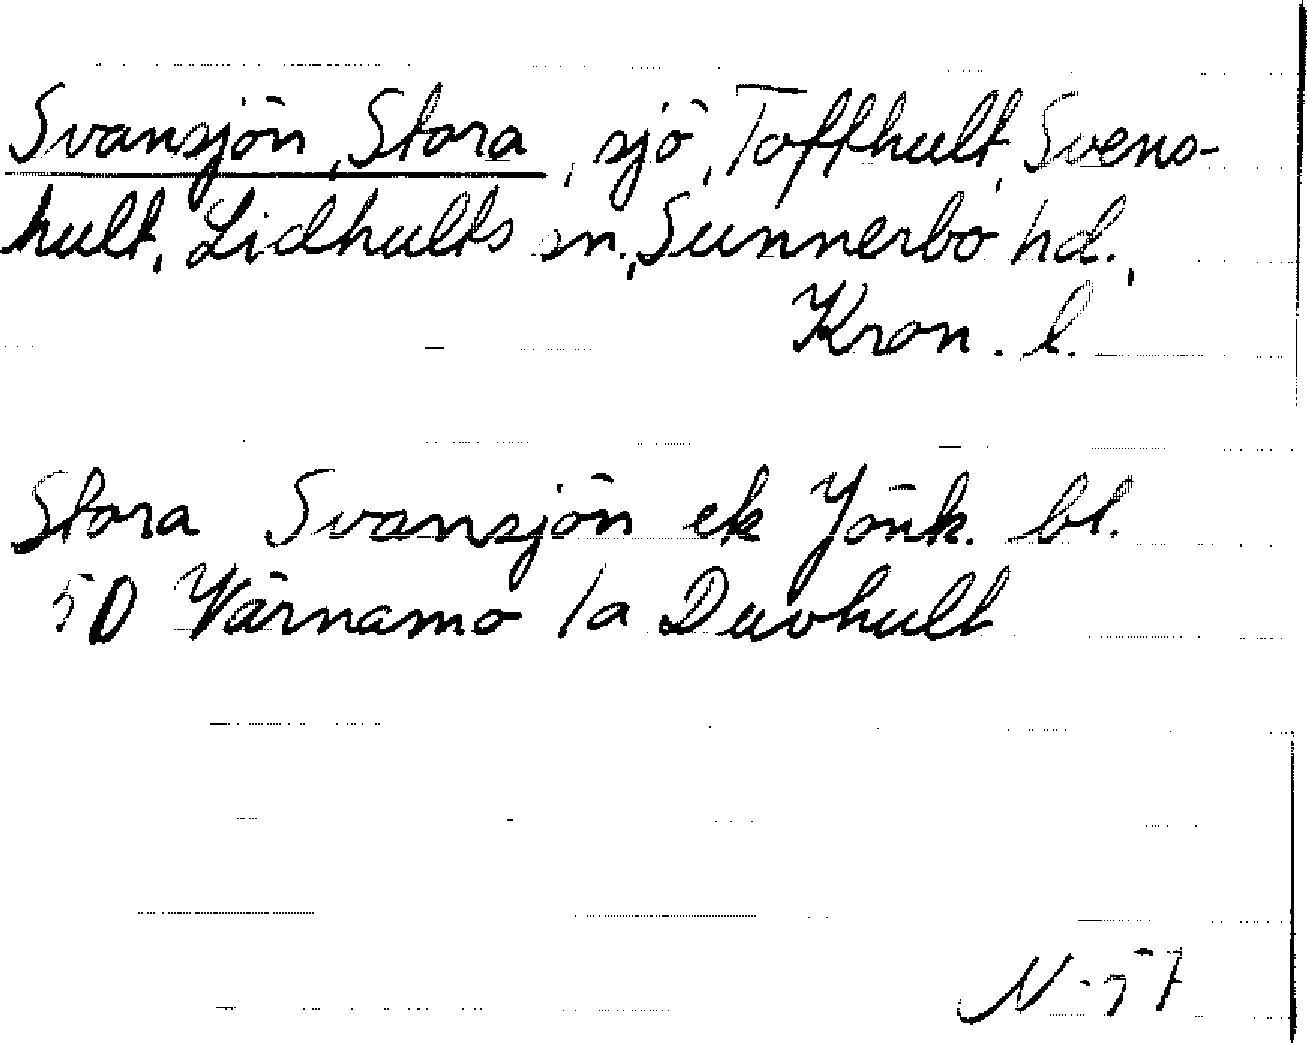 Svansjön, Stora, sjö, Tofthult, Svens-
hult, Lidhults sn, Sunnerbo hd.,
Kron. l.
Stora Svansjön ek Jönk. bl.
5D Värnamo 1a Duvhult
N-57